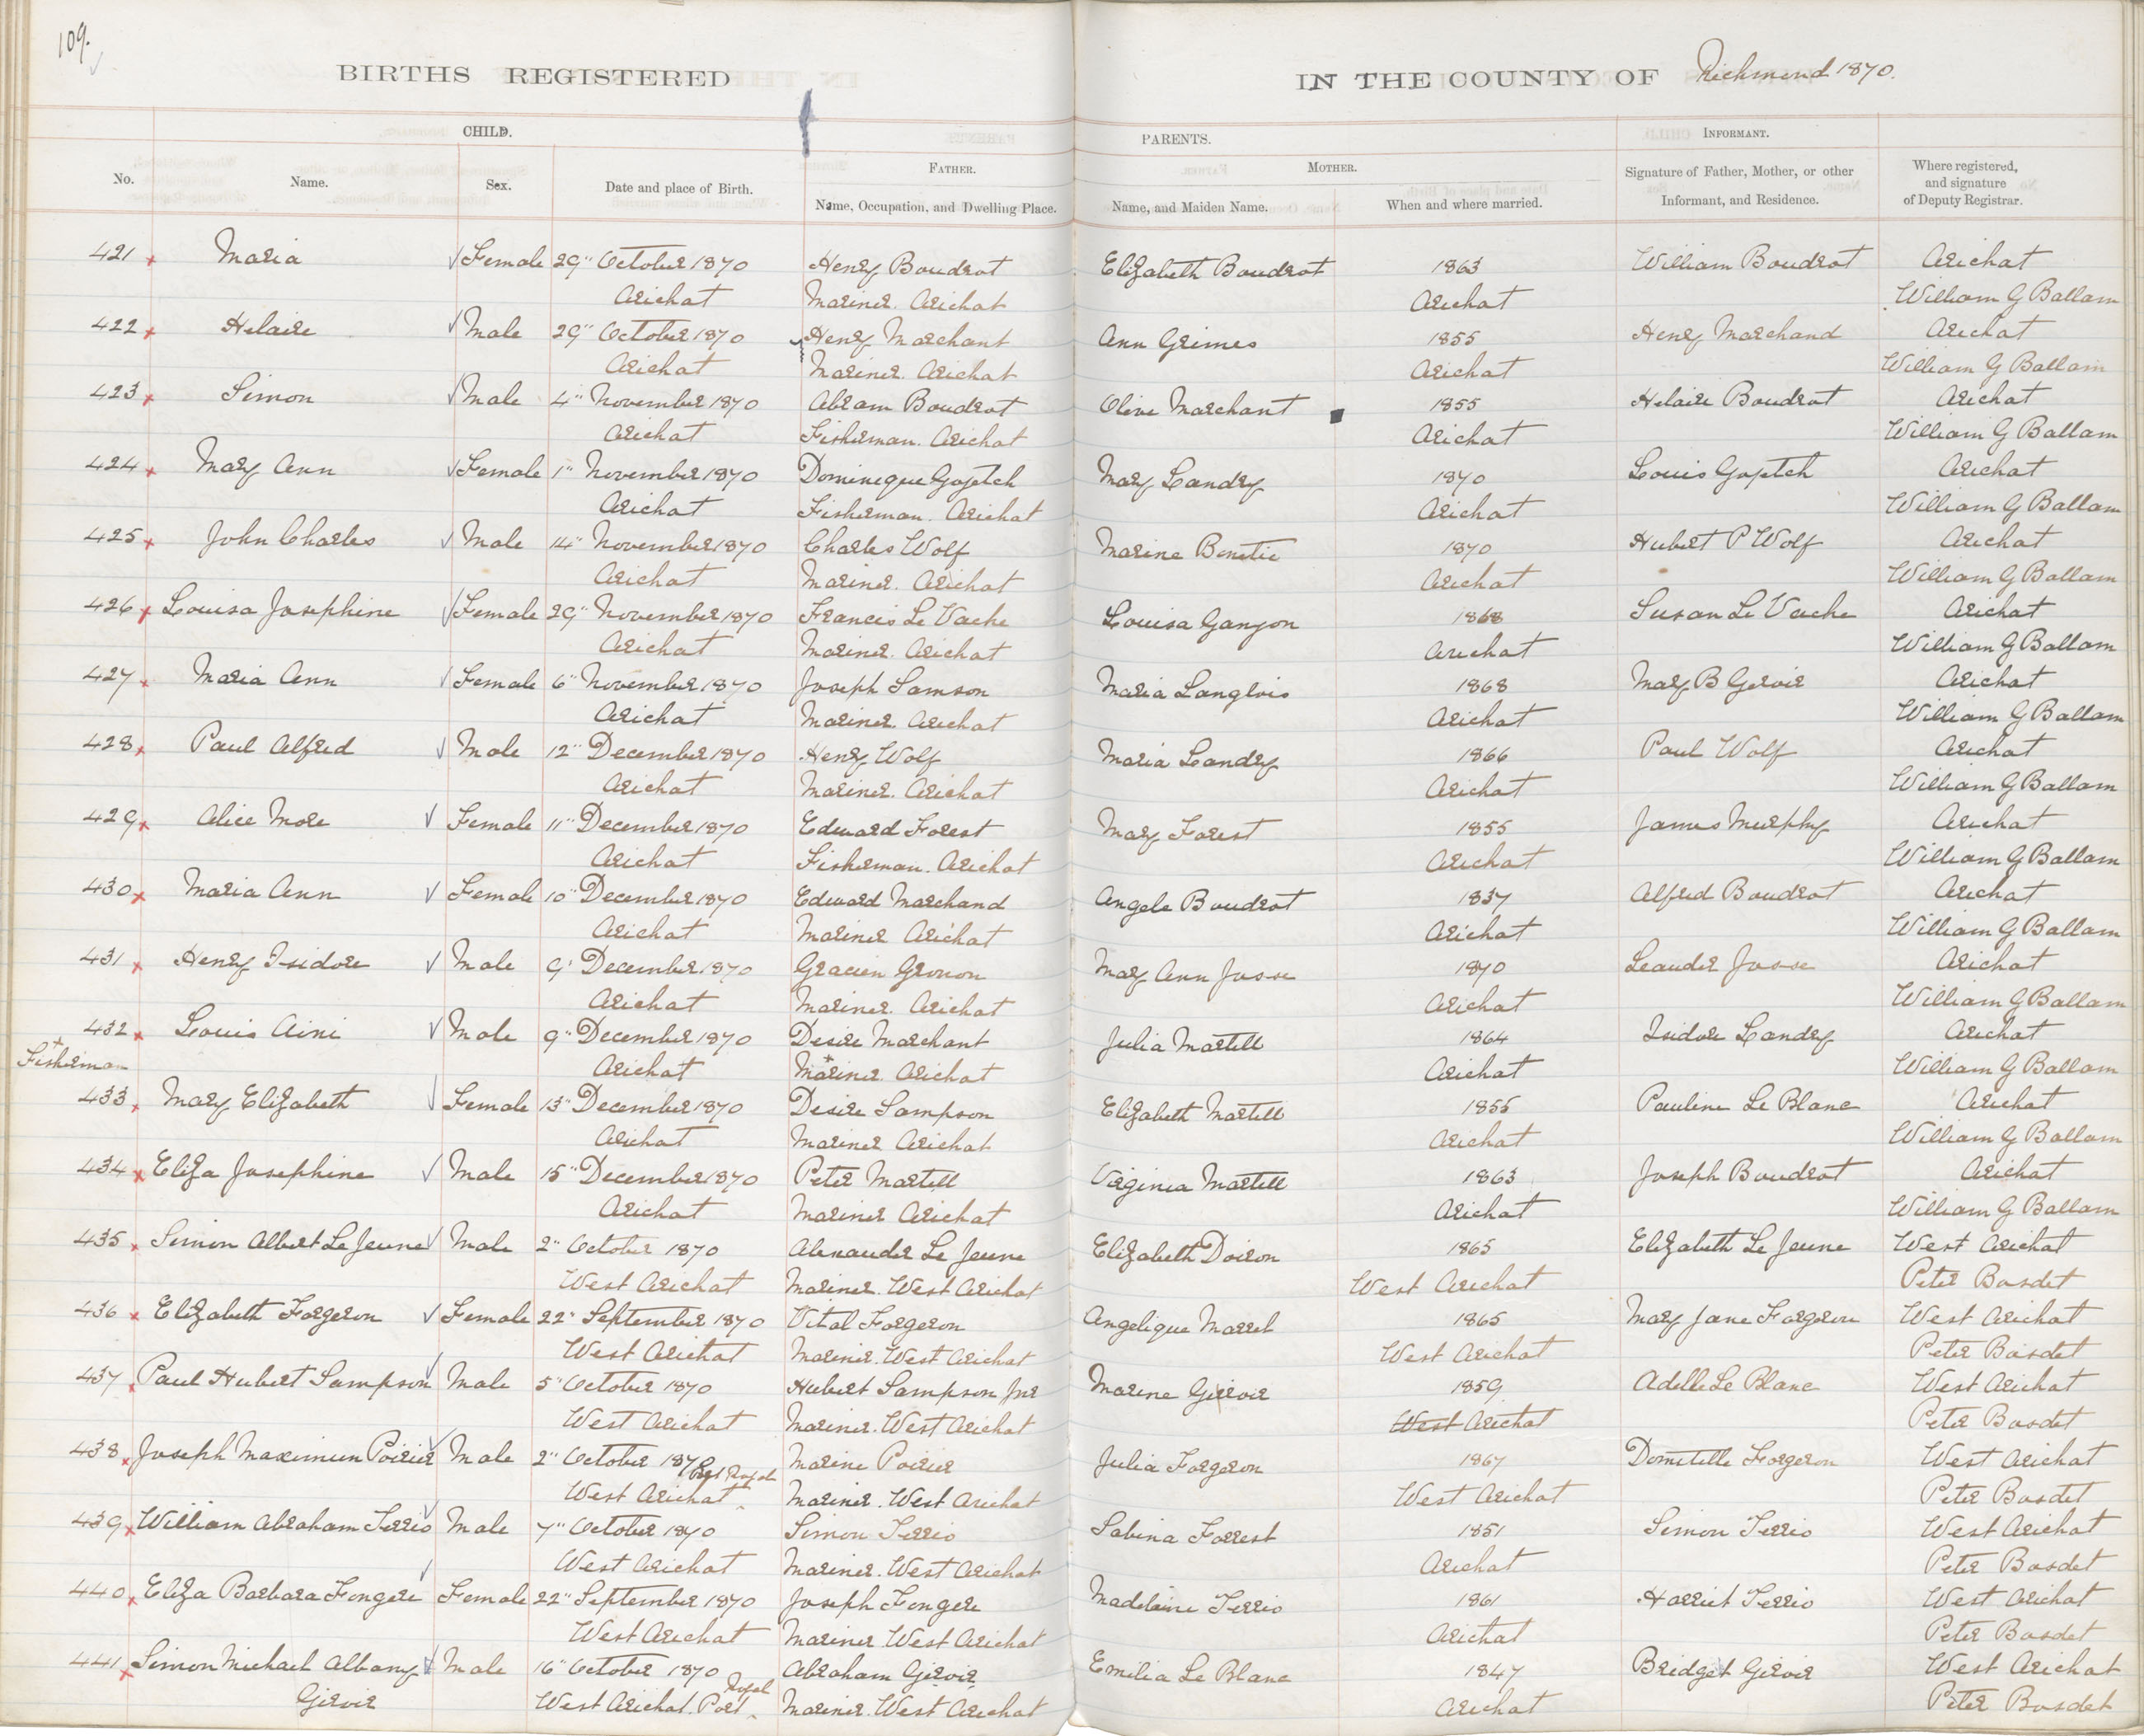 109.
BIRTHS REGISTERED IN THE COUNTY OF Richmond 1870.
CHILD. PARENTS. INFORMANT.
No. Name. Sex. Date and place of Birth. FATHER. MOTHER. Signature of Father, Mother, or other Where registered,
Name, Occupation, and Dwelling Place. Name, and Maiden Name. When and where married. Informant, and Residence. and signature
of Deputy Registrar.
421 Maria Female 29" October 1870 Henry Boudrot Elizabeth Boudrot 1863 William Boudrot Arichat
Arichat Mariner. Arichat Arichat William G Ballam
422 Helaire Male 29" October 1870 Henry Marchant Ann Grimes 1855 Henry Marchand Arichat
Arichat Mariner. Arichat Arichat William G Ballam
423 Simon Male 4" November 1870 Abram Boudrot Olive Marchant 1855 Helaire Boudrot Arichat
Arichat Fisherman. Arichat Arichat William G Ballam
424 Mary Ann Female 1" November 1870 Domineque Goyetch Mary Landry 1870 Louis Goyetch Arichat
Arichat Fisherman. Arichat Arichat William G Ballam
425 John Charles Male 14" November 1870 Charles Wolf Marine Benetie 1870 Hubert P Wolf Arichat
Arichat Mariner. Arichat Arichat William G Ballam
426 Louisa Josephine Female 29" November 1870 Francis Le Vache Louisa Ganyon 1868 Susan Le Vache Arichat
Arichat Mariner. Arichat Arichat William G Ballam
427 Maria Ann Female 6" November 1870 Joseph Samson Maria Langlois 1868 Mary B Gervir Arichat
Arichat Mariner. Arichat Arichat William G Ballam
428 Paul Alfred Male 12" December 1870 Henry Wolf Maria Landry 1866 Paul Wolf Arichat
Arichat Mariner. Arichat Arichat William G Ballam
429 Alice More Female 11" December 1870 Edward Forest Mary Forest 1855 James Murphy Arichat
Arichat Fisherman. Arichat Arichat William G Ballam
430 Maria Ann Female 10" December 1870 Edward Marchand Angele Boudrot 1837 Alfred Boudrot Arichat
Arichat Mariner Arichat Arichat William G Ballam
431 Henry Isidore Male 9" December 1870 Gracien Grouon Mary Ann Josse 1870 Leander Josse Arichat
Arichat Mariner. Arichat Arichat William G Ballam
432 Louis Aini Male 9" December 1870 Desire Marchant Julia Martell 1864 Isidore Landry Arichat
+ Fisherman Arichat + Mariner. Arichat Arichat William G Ballam
433 Mary Elizabeth Female 13" December 1870 Desire Sampson Elizabeth Martell 1855 Pauline Le Blanc Arichat
Arichat Mariner Arichat Arichat William G Ballam
434 Eliza Josephine Male 15" December 1870 Peter Martell Virginia Martell 1863 Joseph Boudrot Arichat
Arichat Mariner Arichat Arichat William G Ballam
435 Simon Albert Le Jeune Male 2" October 1870 Alexander Le Jeune Elizabeth Doiron 1865 Elizabeth Le Jeune West Arichat
West Arichat Mariner. West Arichat West Arichat Peter Bosdet
436 Elizabeth Forgeron Female 22" September 1870 Vital Forgeron Angelique Marrel 1865 Mary Jane Forgeron West Arichat
West Arichat Mariner. West Arichat West Arichat Peter Bosdet
437 Paul Hubert Sampson Male 5" October 1870 Hubert Sampson Jnr Marine Girroir 1859 Adelle Le Blanc West Arichat
West Arichat Mariner. West Arichat West Arichat Peter Bosdet
438 Joseph Maximun Poirier Male 2" October 1870 Marine Poirier Julia Forgeron 1867 Domitelle Forgeron West Arichat
West Arichat Port Royal Mariner. West Arichat West Arichat Peter Bosdet
439 William Abraham Terrio Male 7" October 1870 Simon Terrio Sabina Forrest 1851 Simon Terrio West Arichat
West Arichat Mariner. West Arichat Arichat Peter Bosdet
440 Eliza Barbara Fongere Female 22" September 1870 Joseph Fongere Madelaine Terrio 1861 Harriet Terrio West Arichat
West Arichat Mariner. West Arichat Arichat Peter Bosdet
441 Simon Michael Albany Male 16" October 1870 Abraham Girvir Emilia Le Blanc 1847 Bridget Girvir West Arichat
Girvir West Arichat. Port Royal Mariner. West Arichat Arichat Peter Bosdet